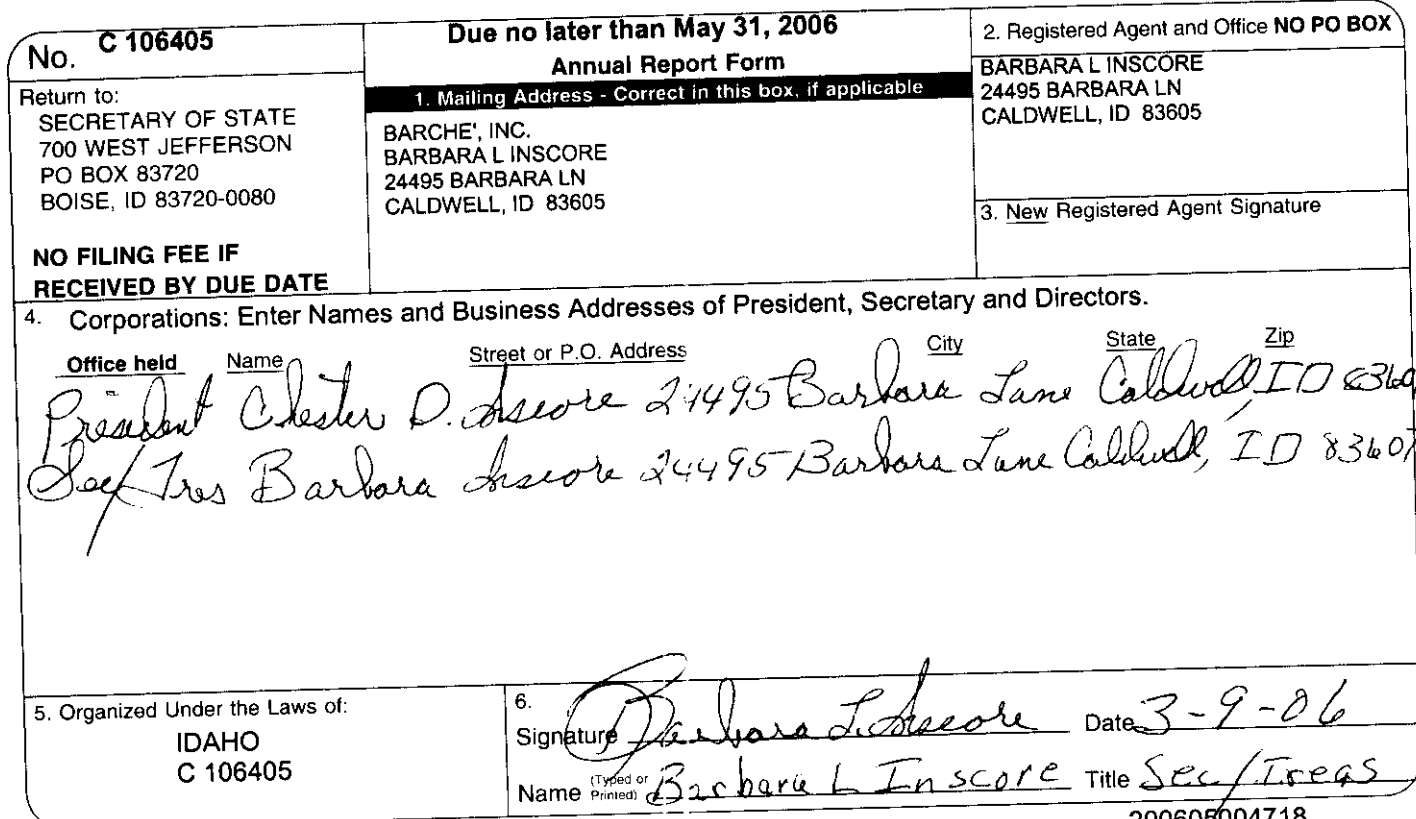 No. C 106405
Return to:
SECRETARY OF STATE
700 WEST JEFFERSON
PO BOX 83720
BOISE, ID 83720-0080
NO FILING FEE IF
RECEIVED BY DUE DATE
Due no later than May 31, 2006
Annual Report Form
1. Mailing Address - Correct in this box, if applicable
BARCHE', INC.
BARBARA L INSCORE
24495 BARBARA LN
CALDWELL, ID 83605
2. Registered Agent and Office NO PO BOX
BARBARA L INSCORE
24495 BARBARA LN
CALDWELL, ID 83605
3. New Registered Agent Signature
4. Corporations: Enter Names and Business Addresses of President, Secretary and Directors.
Office held Name Street or P.O. Address City State Zip
President Chester D. Inscore 24495 Barbara Lane Caldwell, ID
Sec/Tres Barbara Inscore 24495 Barbara Lane Caldwell, ID 83607
5. Organized Under the Laws of:
IDAHO
C 106405
6.
Signature Barbara L. Inscore Date 3-9-06
Name (Typed or Printed) Barbara L Inscore Title Sec/Treas
200605004718